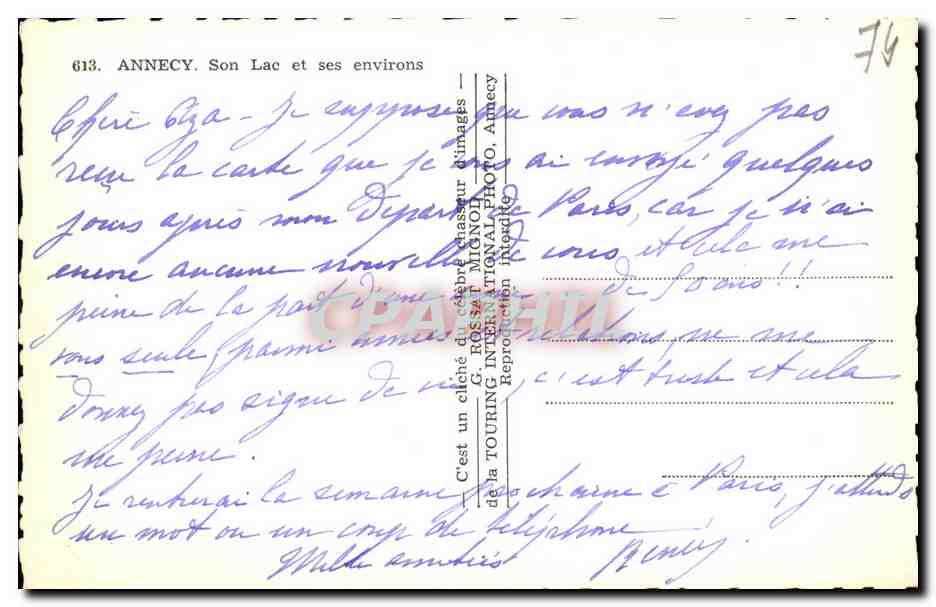 613. ANNECY. Son Lac et ses environs
74
Je suppose que vous n'avez pas
reçu la carte que je vous ai envoyé quelques
jours après mon départ de Paris, car je n'ai
encore aucune nouvelle de vous, et cela me
peine de la part d'une amie de 50 ans!!
vous seule parmi me
donnez pas signe de vie, c'est triste et cela
me peine.
Je rentrerai la semaine prochaine à Paris, j'attends
un mot ou un coup de téléphone
Mille amitiés
C'est un cliché du célèbre chasseur d'images —
G. ROSSAT MIGNOD
de la TOURING INTERNATIONAL PHOTO, Annecy
Reproduction interdite
CPARAMA